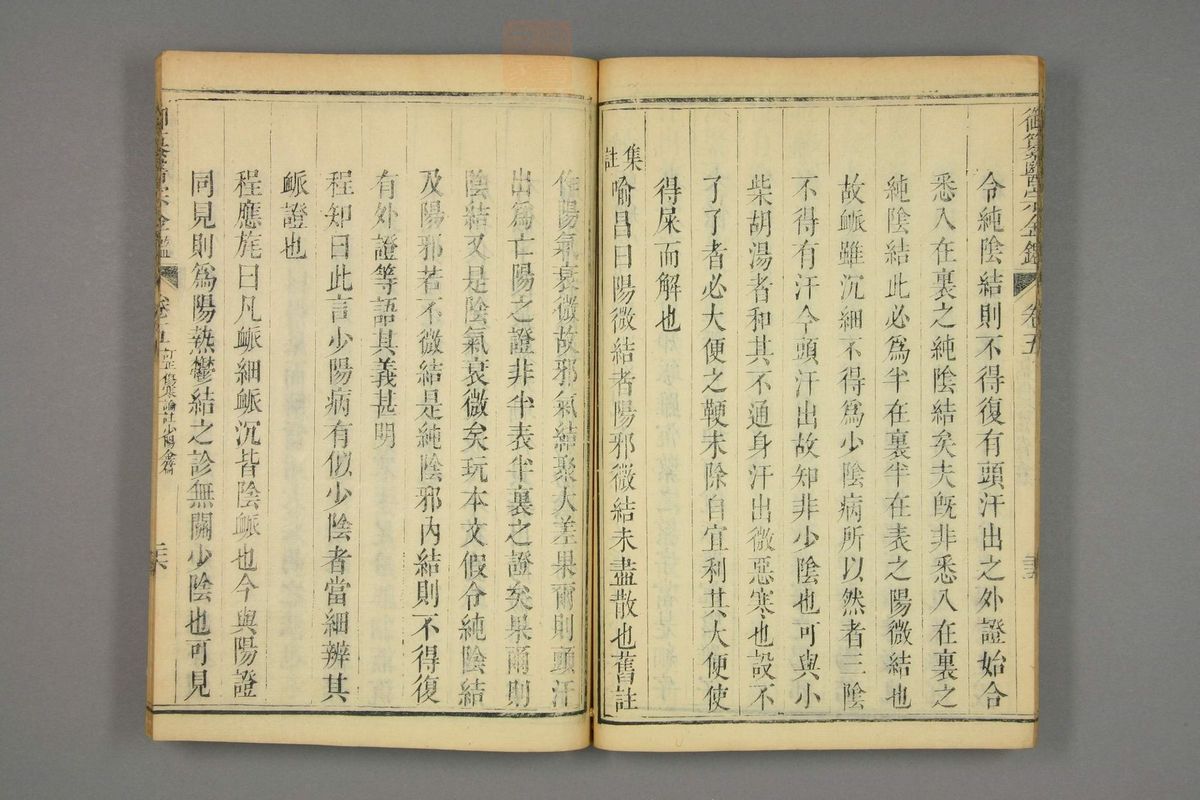 御纂醫宗金鑑 卷五
令純陰結則不得復有頭汗出之外證始合
悉入在裏之純陰結矣夫旣非悉入在裏之
純陰結此必爲半在裏半在表之陽微結也
故䘑雖沉細不得爲少陰病所以然者三陰
不得有汗今頭汗出故知非少陰也可與小
柴胡湯者和其不通身汗出微惡寒也設不
了了者必大便之鞕未除自宜利其大便使
得屎而解也
集註 喻昌曰陽微結者陽邪微結未盡散也舊註
作陽氣衰微故邪氣結聚大差果爾則頭汗
出爲亡陽之證非半表半裏之證矣果爾則
陰結又是陰氣衰微矣玩本文假令純陰結
及陽邪若不微結是純陰邪內結則不得復
有外證等語其義甚明
程知曰此言少陽病有似少陰者當細辨其
䘑證也
程應旄曰凡䘑細䘑沉皆陰䘑也今與陽證
同見則爲陽熱鬱結之診無關少陰也可見